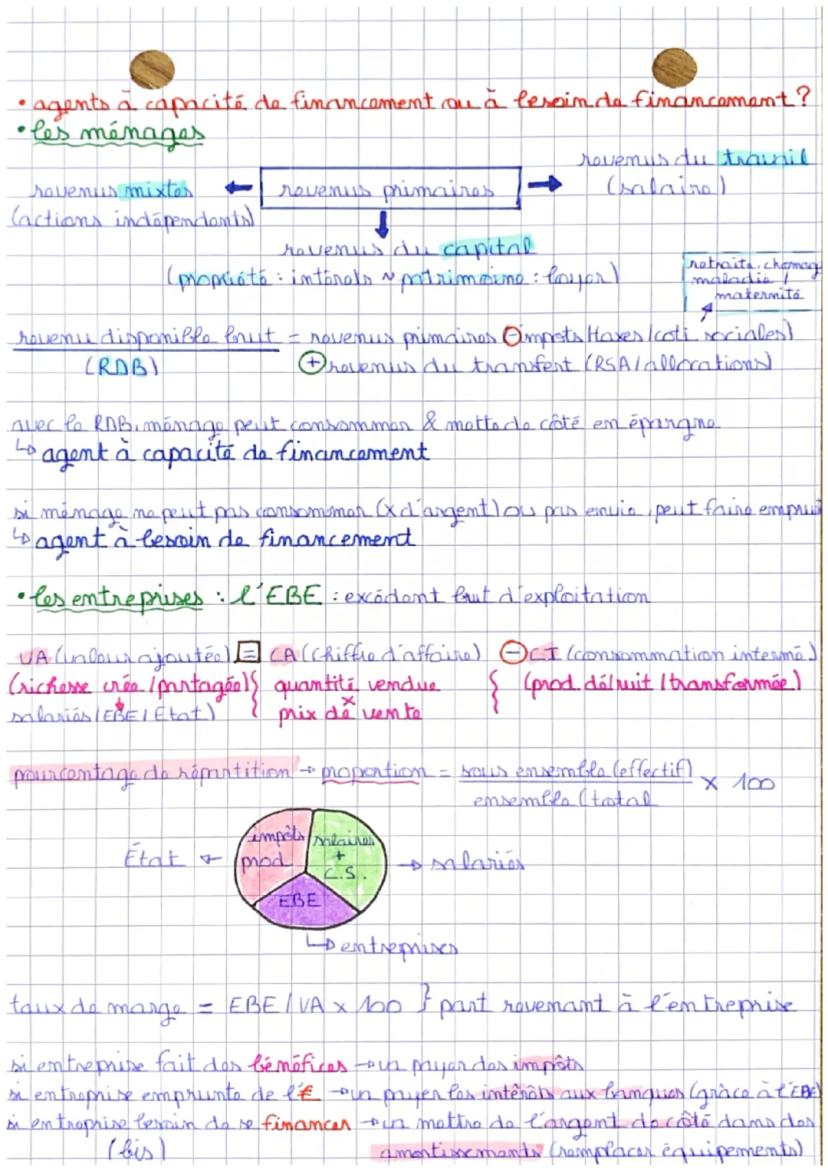 • agents à capacité de financement ou à besoin de financement ?
• les ménages
revenus du travail
(salaire)
revenus mixtes ← revenus primaires →
(actions indépendants)
↓
revenus du capital
(propriété : intérêts ~ patrimoine : loyer)
retraite, chomag
maladie /
maternité
revenu disponible brut = revenus primaires ⊖ impôts/taxes/coti sociales)
(RDB) ⊕ revenus du transfert (RSA/allocations)
avec le RDB, ménage peut consommer & mettre de côté en épargne
↳ agent à capacité de financement
si ménage ne peut pas consommer (x d'argent) ou pas envie, peut faire emprun
↳ agent à besoin de financement
• les entreprises : l'EBE : excédent brut d'exploitation
VA (valeur ajoutée) = CA (chiffre d'affaire) ⊖ CI (consommation interme)
(richesse crée/partagée) } quantité vendue { (prod. détruit/transformée)
salariés/EBE/État) { × prix de vente
pourcentage de répartition → proportion = sous ensemble (effectif) × 100
ensemble (total
impôts prod. salaires + C.S.
État ← → salariés
EBE
↳ entreprises
taux de marge = EBE/VA × 100 } part revenant à l'entreprise
si entreprise fait des bénéfices → va payer des impôts
si entreprise emprunte de l'€ → va payer les intérêts aux banques (grâce à l'EBE)
si entreprise besoin de se financer → va mettre de l'argent de côté dans des
(bis) amortissements (remplacer équipements)